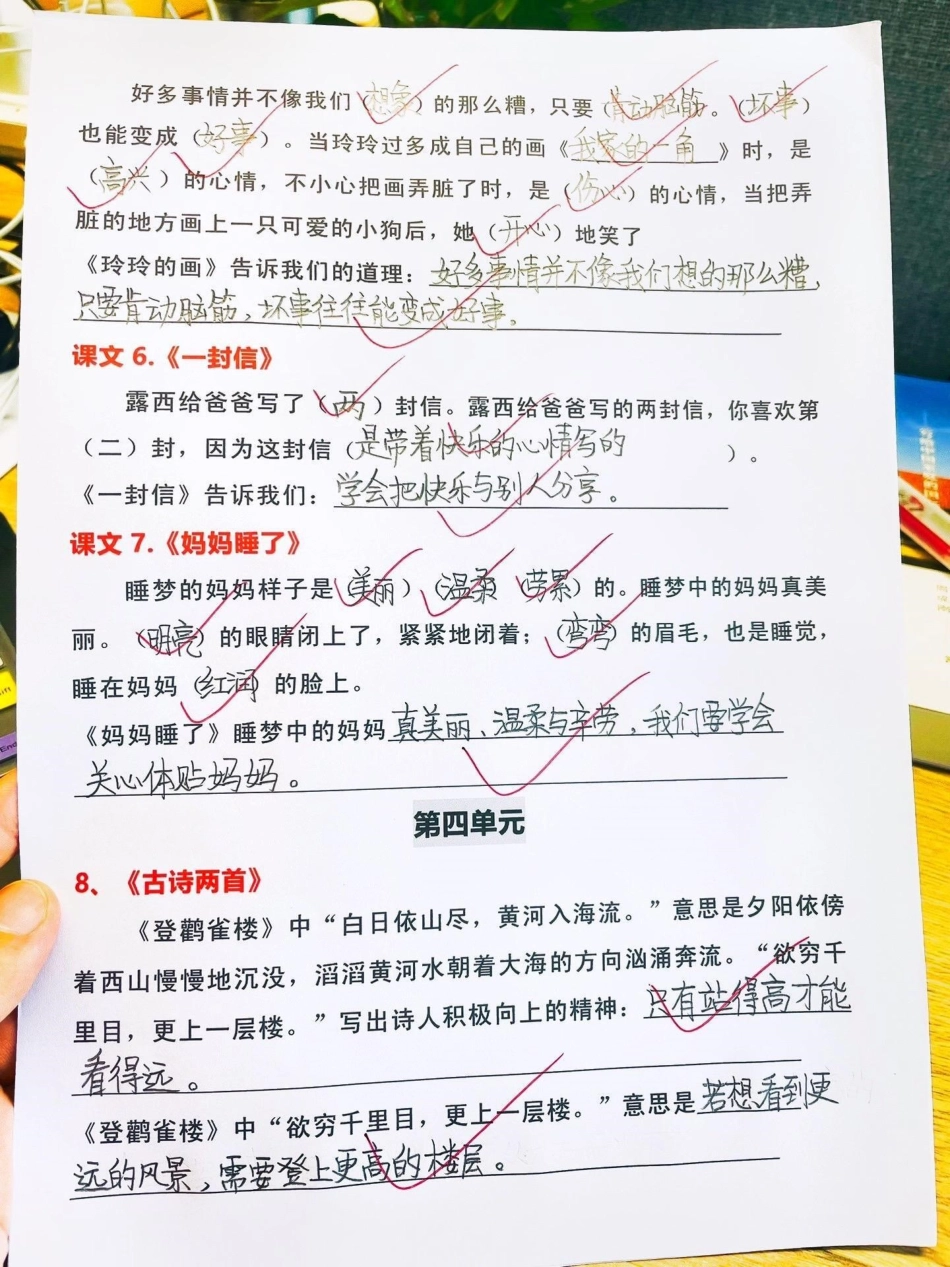 好多事情并不像我们（想象）的那么糟，只要（肯动脑筋。（坏事）
也能变成（好事）。当玲玲过多成自己的画《我家的一角》时，是
（高兴）的心情，不小心把画弄脏了时，是（伤心）的心情，当把弄
脏的地方画上一只可爱的小狗后，她（开心）地笑了
《玲玲的画》告诉我们的道理：好多事情并不像我们想的那么糟，
只要肯动脑筋，坏事往往能变成好事。
课文 6.《一封信》
露西给爸爸写了（两）封信。露西给爸爸写的两封信，你喜欢第
（二）封，因为这封信（是带着快乐的心情写的）。
《一封信》告诉我们：学会把快乐与别人分享。
课文 7.《妈妈睡了》
睡梦的妈妈样子是（美丽）（温柔（劳累）的。睡梦中的妈妈真美
丽。（明亮）的眼睛闭上了，紧紧地闭着；（弯弯）的眉毛，也是睡觉，
睡在妈妈（红润）的脸上。
《妈妈睡了》睡梦中的妈妈真美丽、温柔与辛劳，我们要学会
关心体贴妈妈。
第四单元
8、《古诗两首》
《登鹳雀楼》中“白日依山尽，黄河入海流。”意思是夕阳依傍
着西山慢慢地沉没，滔滔黄河水朝着大海的方向汹涌奔流。“欲穷千
里目，更上一层楼。”写出诗人积极向上的精神：只有站得高才能
看得远。
《登鹳雀楼》中“欲穷千里目，更上一层楼。”意思是若想看到更
远的风景，需要登上更高的楼层。